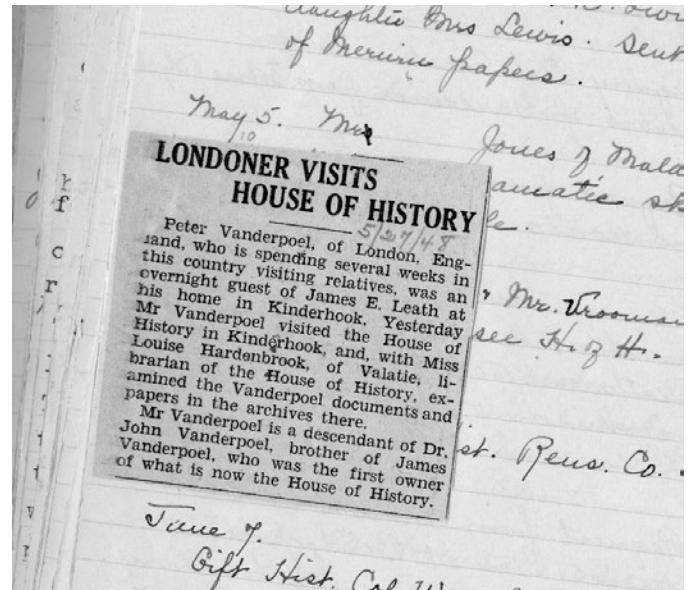 daughter Mrs Lewis. Sent
of Merwin papers.
May 5. Mrs
10
Jones of
LONDONER VISITS
HOUSE OF HISTORY
5/27/48
Peter Vanderpoel, of London, Eng-
land, who is spending several weeks in
this country visiting relatives, was an
overnight guest of James E. Leath at
his home in Kinderhook. Yesterday
Mr Vanderpoel visited the House of
History in Kinderhook, and, with Miss
Louise Hardenbrook, of Valatie, li-
brarian of the House of History, ex-
amined the Vanderpoel documents and
papers in the archives there.
Mr Vanderpoel is a descendant of Dr.
John Vanderpoel, brother of James
Vanderpoel, who was the first owner
of what is now the House of History.
amatic sk
le.
Mr. Vrooman
see H. of H.
st. Rens. Co.
June 7.
Gift Hist. Col.